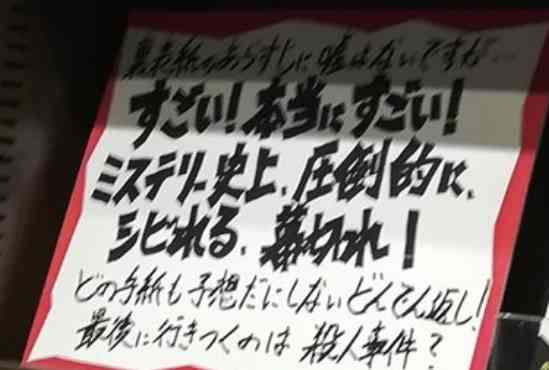 裏表紙のあらすじに嘘はないですが…
すごい!本当にすごい!
ミステリー史上、圧倒的に、
シビれる、幕切れ!
どの手紙も予想だにしないどんでん返し!
最後に行きつくのは殺人事件?